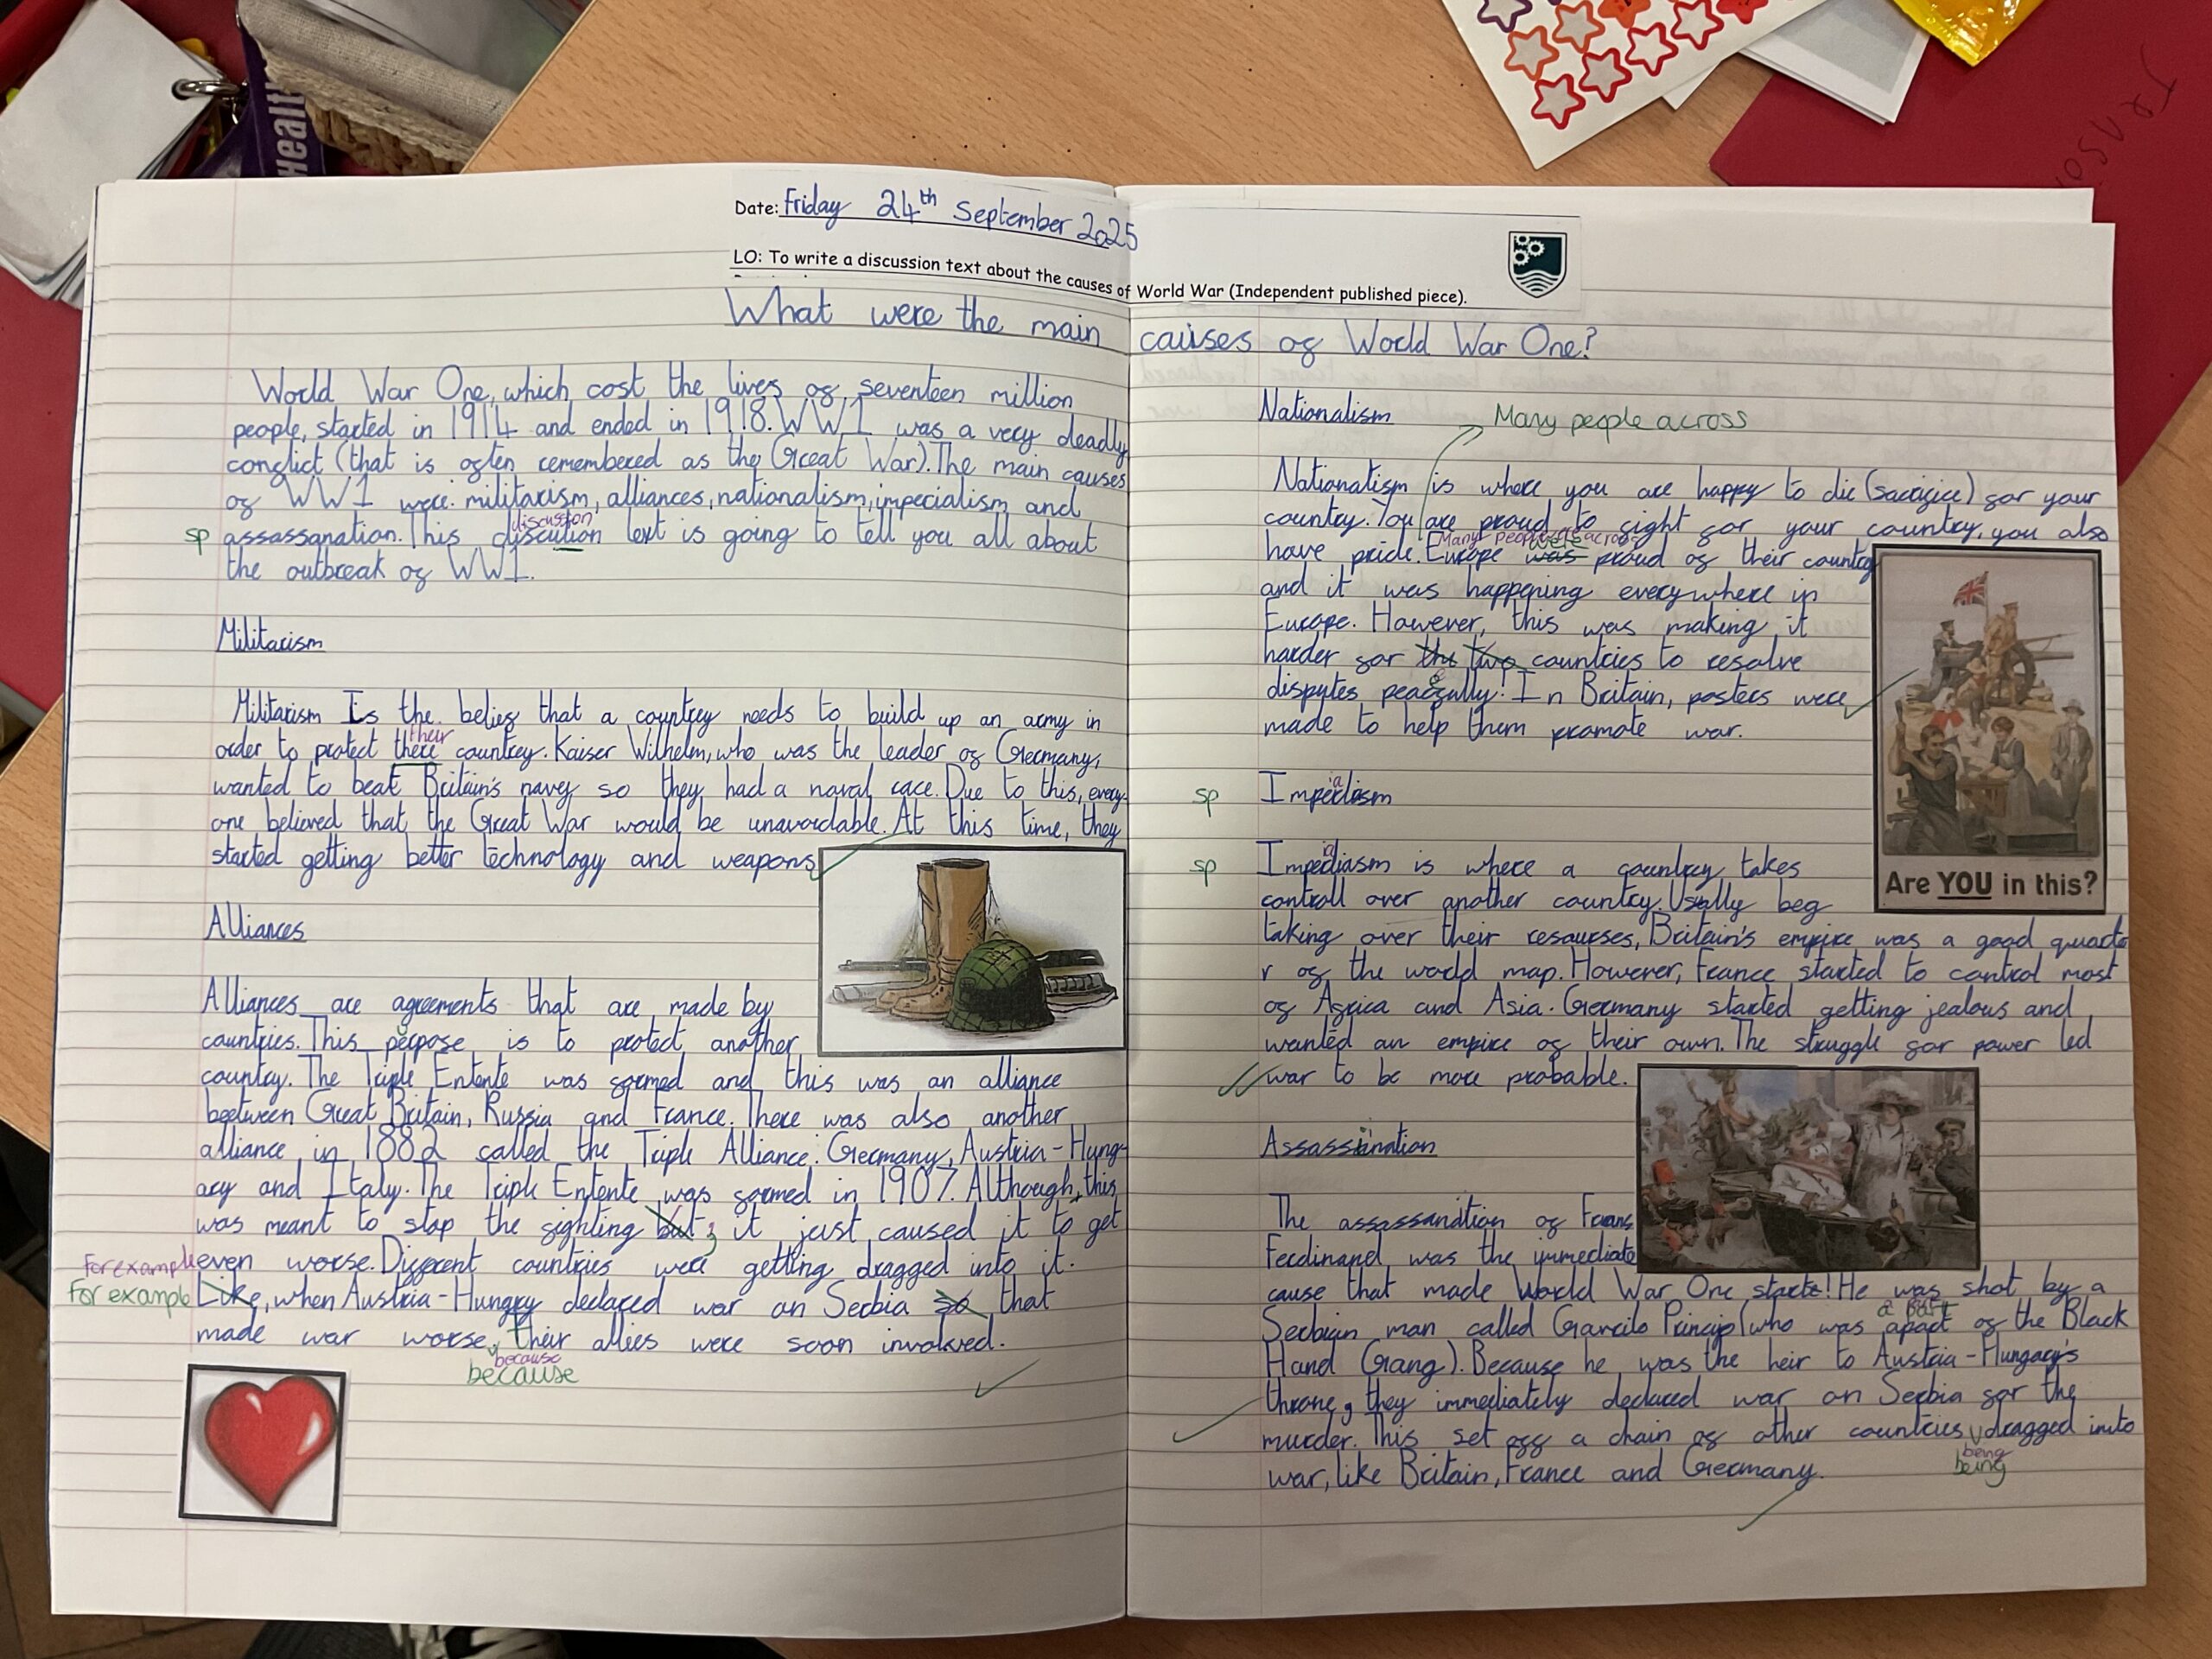 Health
TRASO
Date: Friday 24th September 2025
LO: To write a discussion text about the causes of World War (Independent published piece).
What were the main causes of World War One?
World War One, which cost the lives of seventeen million
people, started in 1914 and ended in 1918. WW1 was a very deadly
conflict (that is often remembered as the Great War). The main causes
of WW1 were: militarism, alliances, nationalism, imperialism and
discussion
sp assassanation. This discution text is going to tell you all about
the outbreak of WW1.
Militarism
Militarism Is the belief that a country needs to build up an army in
their
order to protect there country. Kaiser Wilhelm, who was the leader of Germany,
wanted to beat Britain's navey so they had a naval race. Due to this, every-
one believed that the Great War would be unavoidable. At this time, they
started getting better technology and weapons
Alliances
Alliances are agreements that are made by
countries. This perpose is to protect another
country. The Triple Entente was formed and this was an alliance
beetween Great Britain, Russia and France. There was also another
alliance in 1882 called the Triple Alliance: Germany, Austria-Hung-
ary and Italy. The Triple Entente was formed in 1907. Although, this
was meant to stop the fighting but, it just caused it to get
For example even worse. Different countries were getting dragged into it.
For example Like, when Austria-Hungry declared war on Serbia so that
made war worse, their allies were soon involved.
because
because
Nationalism
Many people across
Nationalism is where you are happy to die (sacrifice) for your
country. You are proud to fight for your country, you also
Many People across were
have pride. Europe was proud of their country
and it was happening everywhere in
Europe. However, this was making it
harder for the two countries to resolve
disputes peacefully! In Britain, posters were
made to help them promote war.
Are YOU in this?
sp Imperiaism
sp Imperiaiasm is where a country takes
controll over another country. Usally beg
taking over their resourses, Britain's empire was a good quarte
r of the world map. However, France started to control most
of Africa and Asia. Germany started getting jealous and
wanted an empire of their own. The struggle for power led
war to be more probable.
Assassination
The assassanation of Frans
Ferdinand was the immediate
cause that made World War One starte! He was shot by a
a part
Serbian man called Gavrilo Princip (who was apart of the Black
Hand Gang). Because he was the heir to Austria-Hungary's
throne, they immediately declared war on Serbia for the
murder. This set off a chain of other countries dragged into
being
being
war, like Britain, France and Germany.